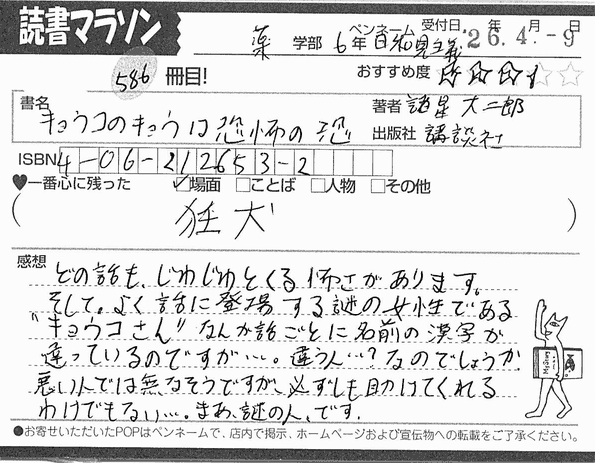 読書マラソン
薬 学部 6年 ペンネーム 日和見主義 受付日. 年 月 日
26.4.-9
586 冊目!
おすすめ度
書名 キョウコのキョウは恐怖の恐
著者 諸星大二郎
出版社 講談社
ISBN 4-06-212653-2
♥一番心に残った ☑場面 □ことば □人物 □その他
(狂犬)
感想 どの話も、じわじわとくる怖さがあります。
そして。よく話に登場する謎の女性である
"キョウコさん"なんか話ごとに名前の漢字が
違っているのですが…。違う人…?なのでしょうか
悪い人では無なそうですが、必ずしも助けてくれる
わけでもない…。まあ、謎の人、です。
●お寄せいただいたPOPはペンネームで、店内で掲示、ホームページおよび宣伝物への転載をご了承ください。